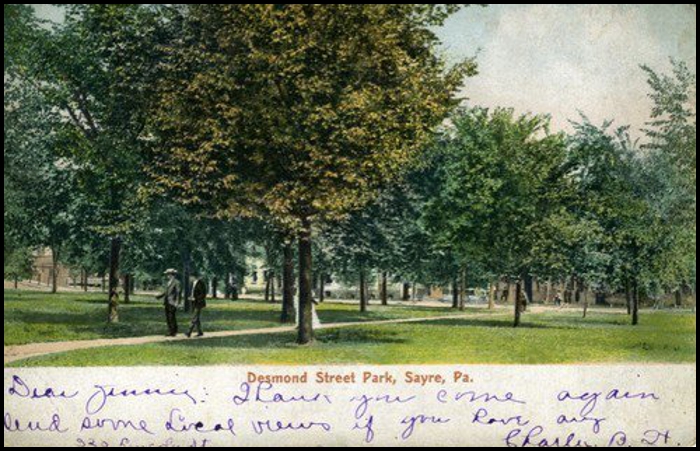 Desmond Street Park, Sayre, Pa.
Dear Jennie: Thank you come again
Send some Local views if you have any
Charles B.